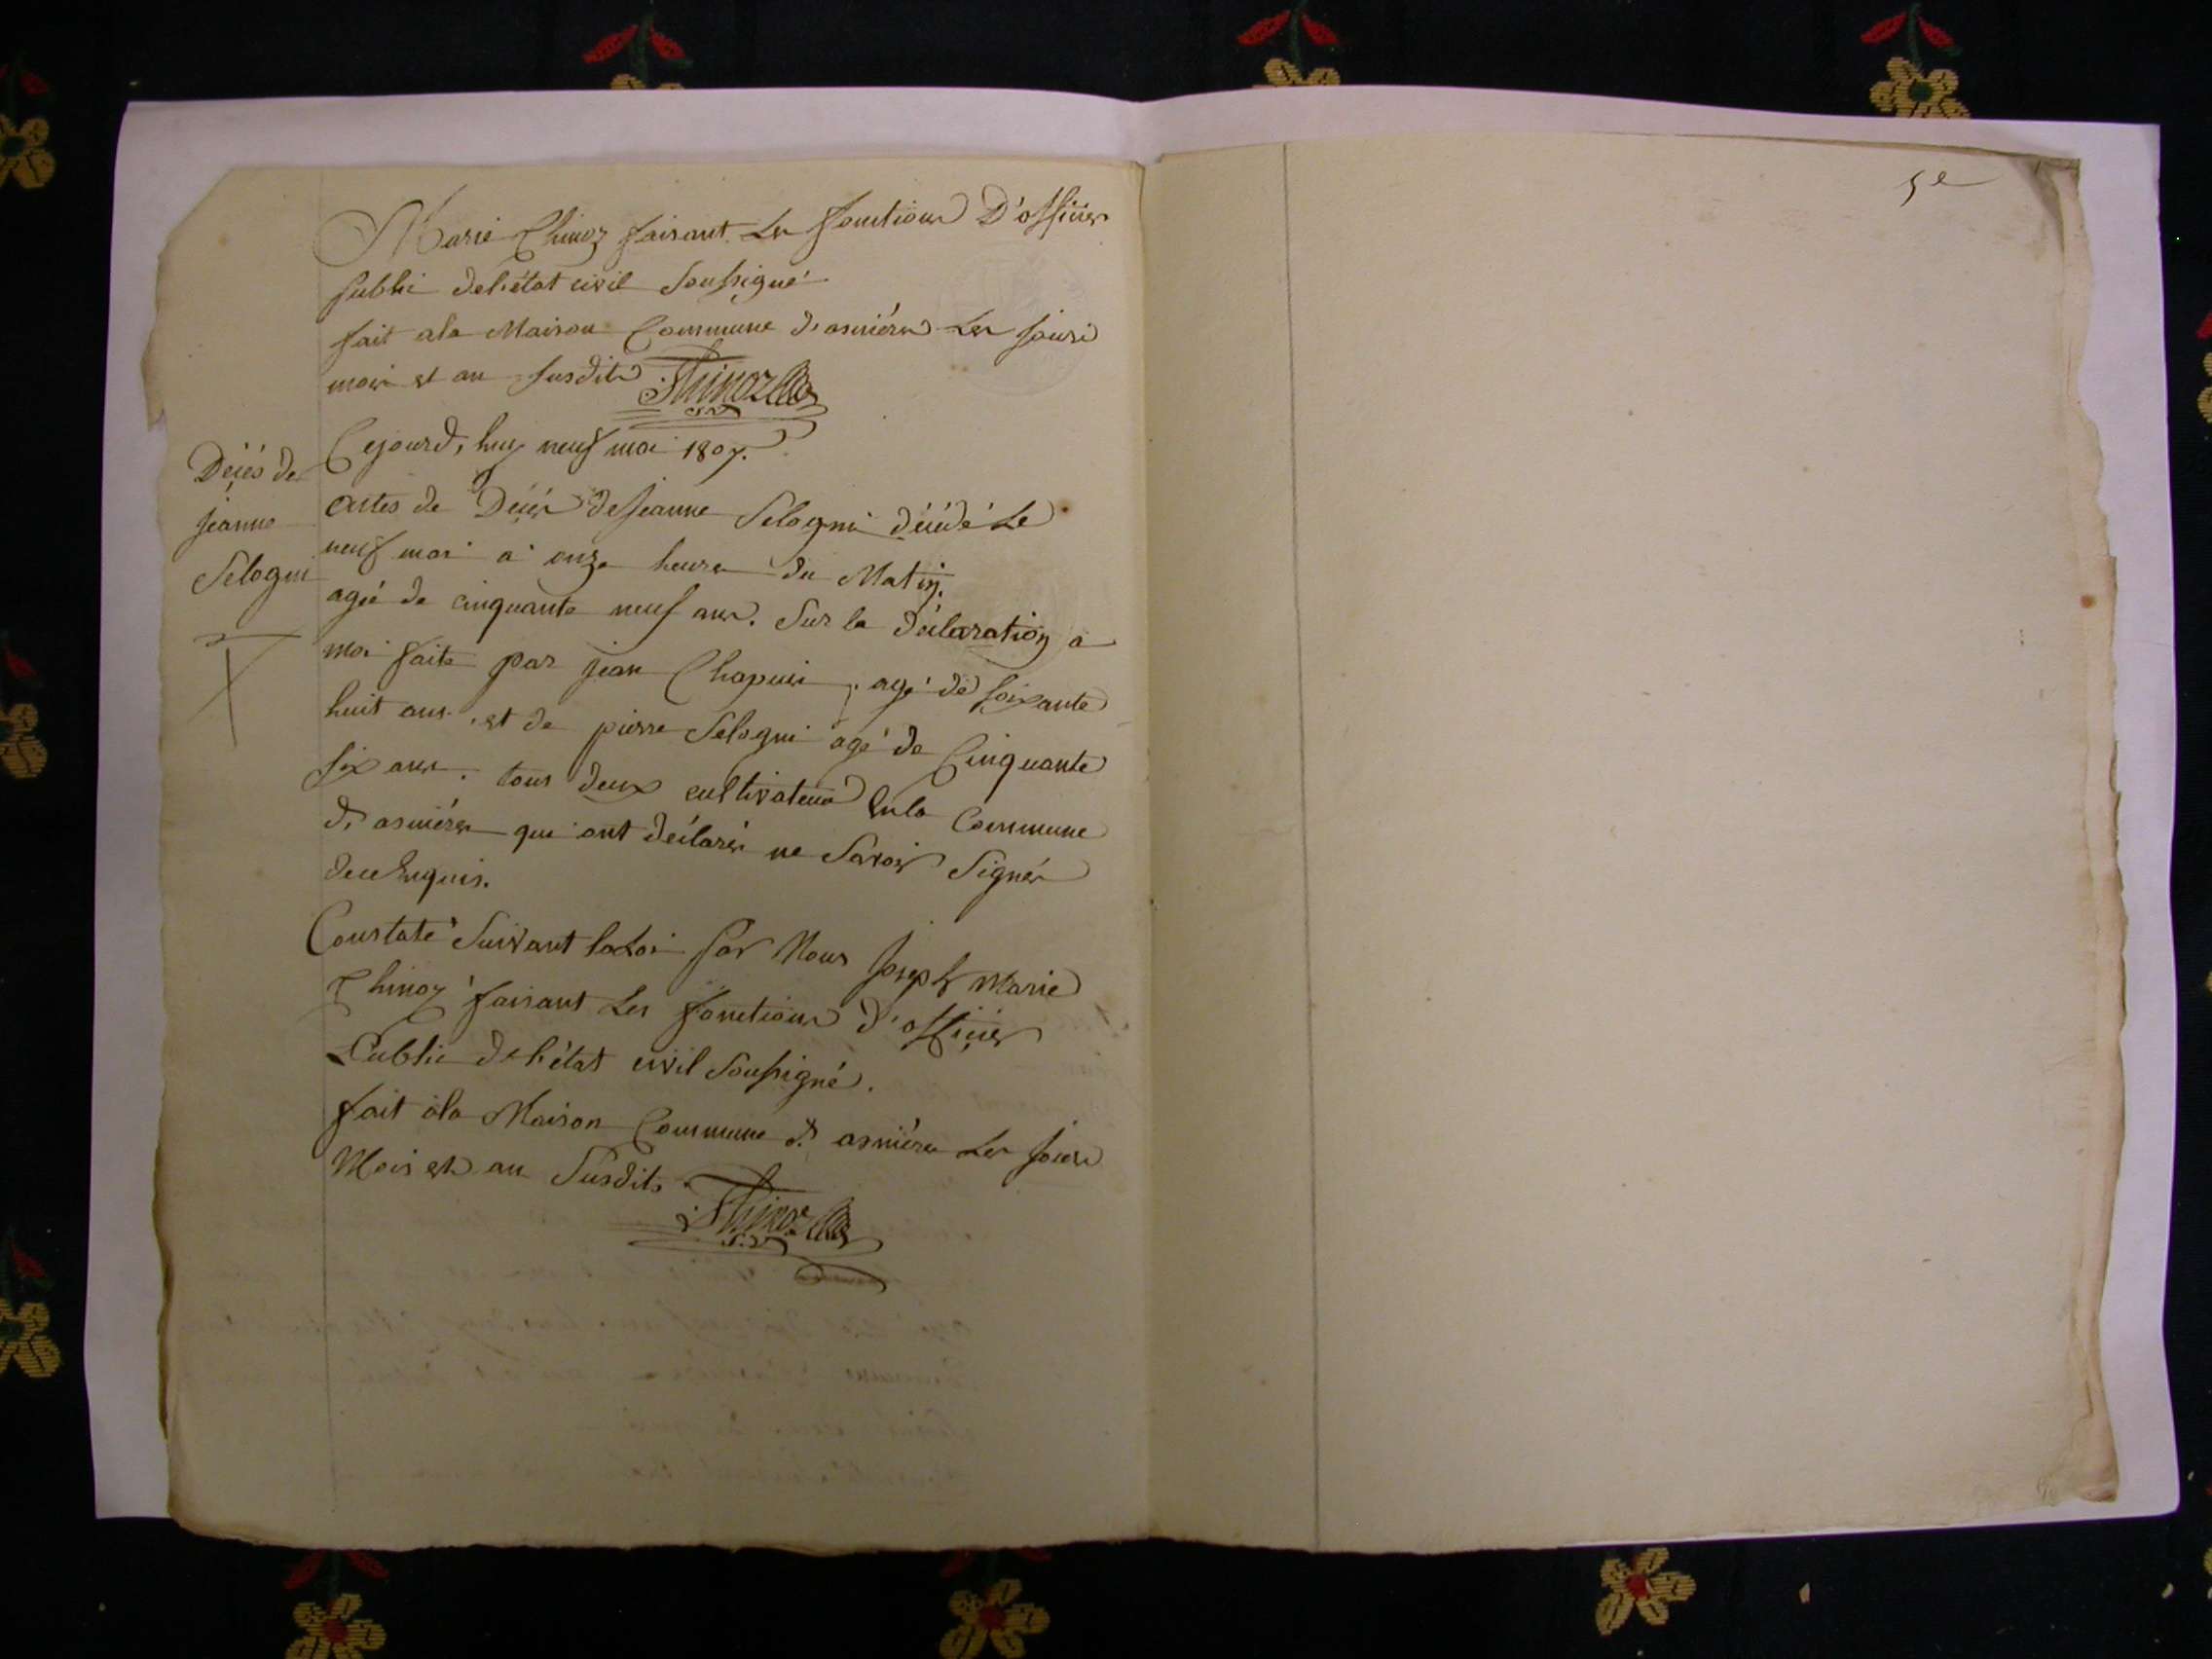 Marie Thinoz faisant Les fonctions D'officier
public de l'état civil Soussigné
fait a la Maison Commune d'asniéres Les jours
mois et an susdits Thinoz
Cejourd'huy neuf mai 1807.
Décés de
jeanne
Selogni
actes de Décés de jeanne Selogni décédé Le
neuf mai a onze heures du Matin.
agée de cinquante neuf ans. Sur la déclaration a
moi faite par jean Chapuis, agé de soixante
huit ans. et de pierre Selogni agé de Cinquante
six ans. tous deux cultivateurs En la Commune
d'asniéres qui ont déclarés ne Savoir Signér
de ce Enquis.
Constaté Suivant la Loi par Nous joseph Marie
Thinoz faisant Les fonctions d'officier
Public de l'état civil Soussigné.
fait a la Maison Commune d'asniéres Les jours
Mois et an Susdits Thinoz
5e